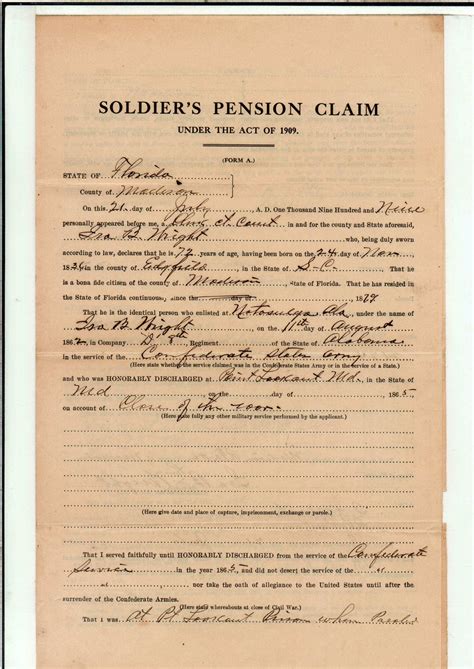 SOLDIER'S PENSION CLAIM
UNDER THE ACT OF 1909.
(FORM A.)
STATE OF Florida
County of Madison
On this 21 day of July, A. D. One Thousand Nine Hundred and Nine
personally appeared before me, a Clerk ct Court in and for the county and State aforesaid,
Ira B Wright who, being duly sworn
according to law, declares that he is 72 years of age, having been born on the 24 day of Nov
in the State of S-C. That he
is a bona fide citizen of the county of Madison State of Florida. That he has resided in
the State of Florida continuously, since the day of 1879
That he is the identical person who enlisted at Notosulga Ala, under the name of
Ira B. Wright on the 11th day of August
1862, in Company D 8th Regiment of Alabama
in the service of the Confederate States Army
(Here state whether the service claimed was in the Confederate States Army or in the service of a State.)
and who was HONORABLY DISCHARGED at Point Lookout Md., in the State of
Md on the day of 1865
on account of Close of the war
(Here state fully any other military service performed by the applicant.)
(Here give date and place of capture, imprisonment, exchange or parole.)
That I served faithfully until HONORABLY DISCHARGED from the service of the Confederate
Service in the year 1865, and did not desert the service of the at
at nor take the oath of allegiance to the United States until after the
surrender of the Confederate Armies.
(Here state whereabouts at close of Civil War.)
That I was At Pt Lookout Prison when Paroled